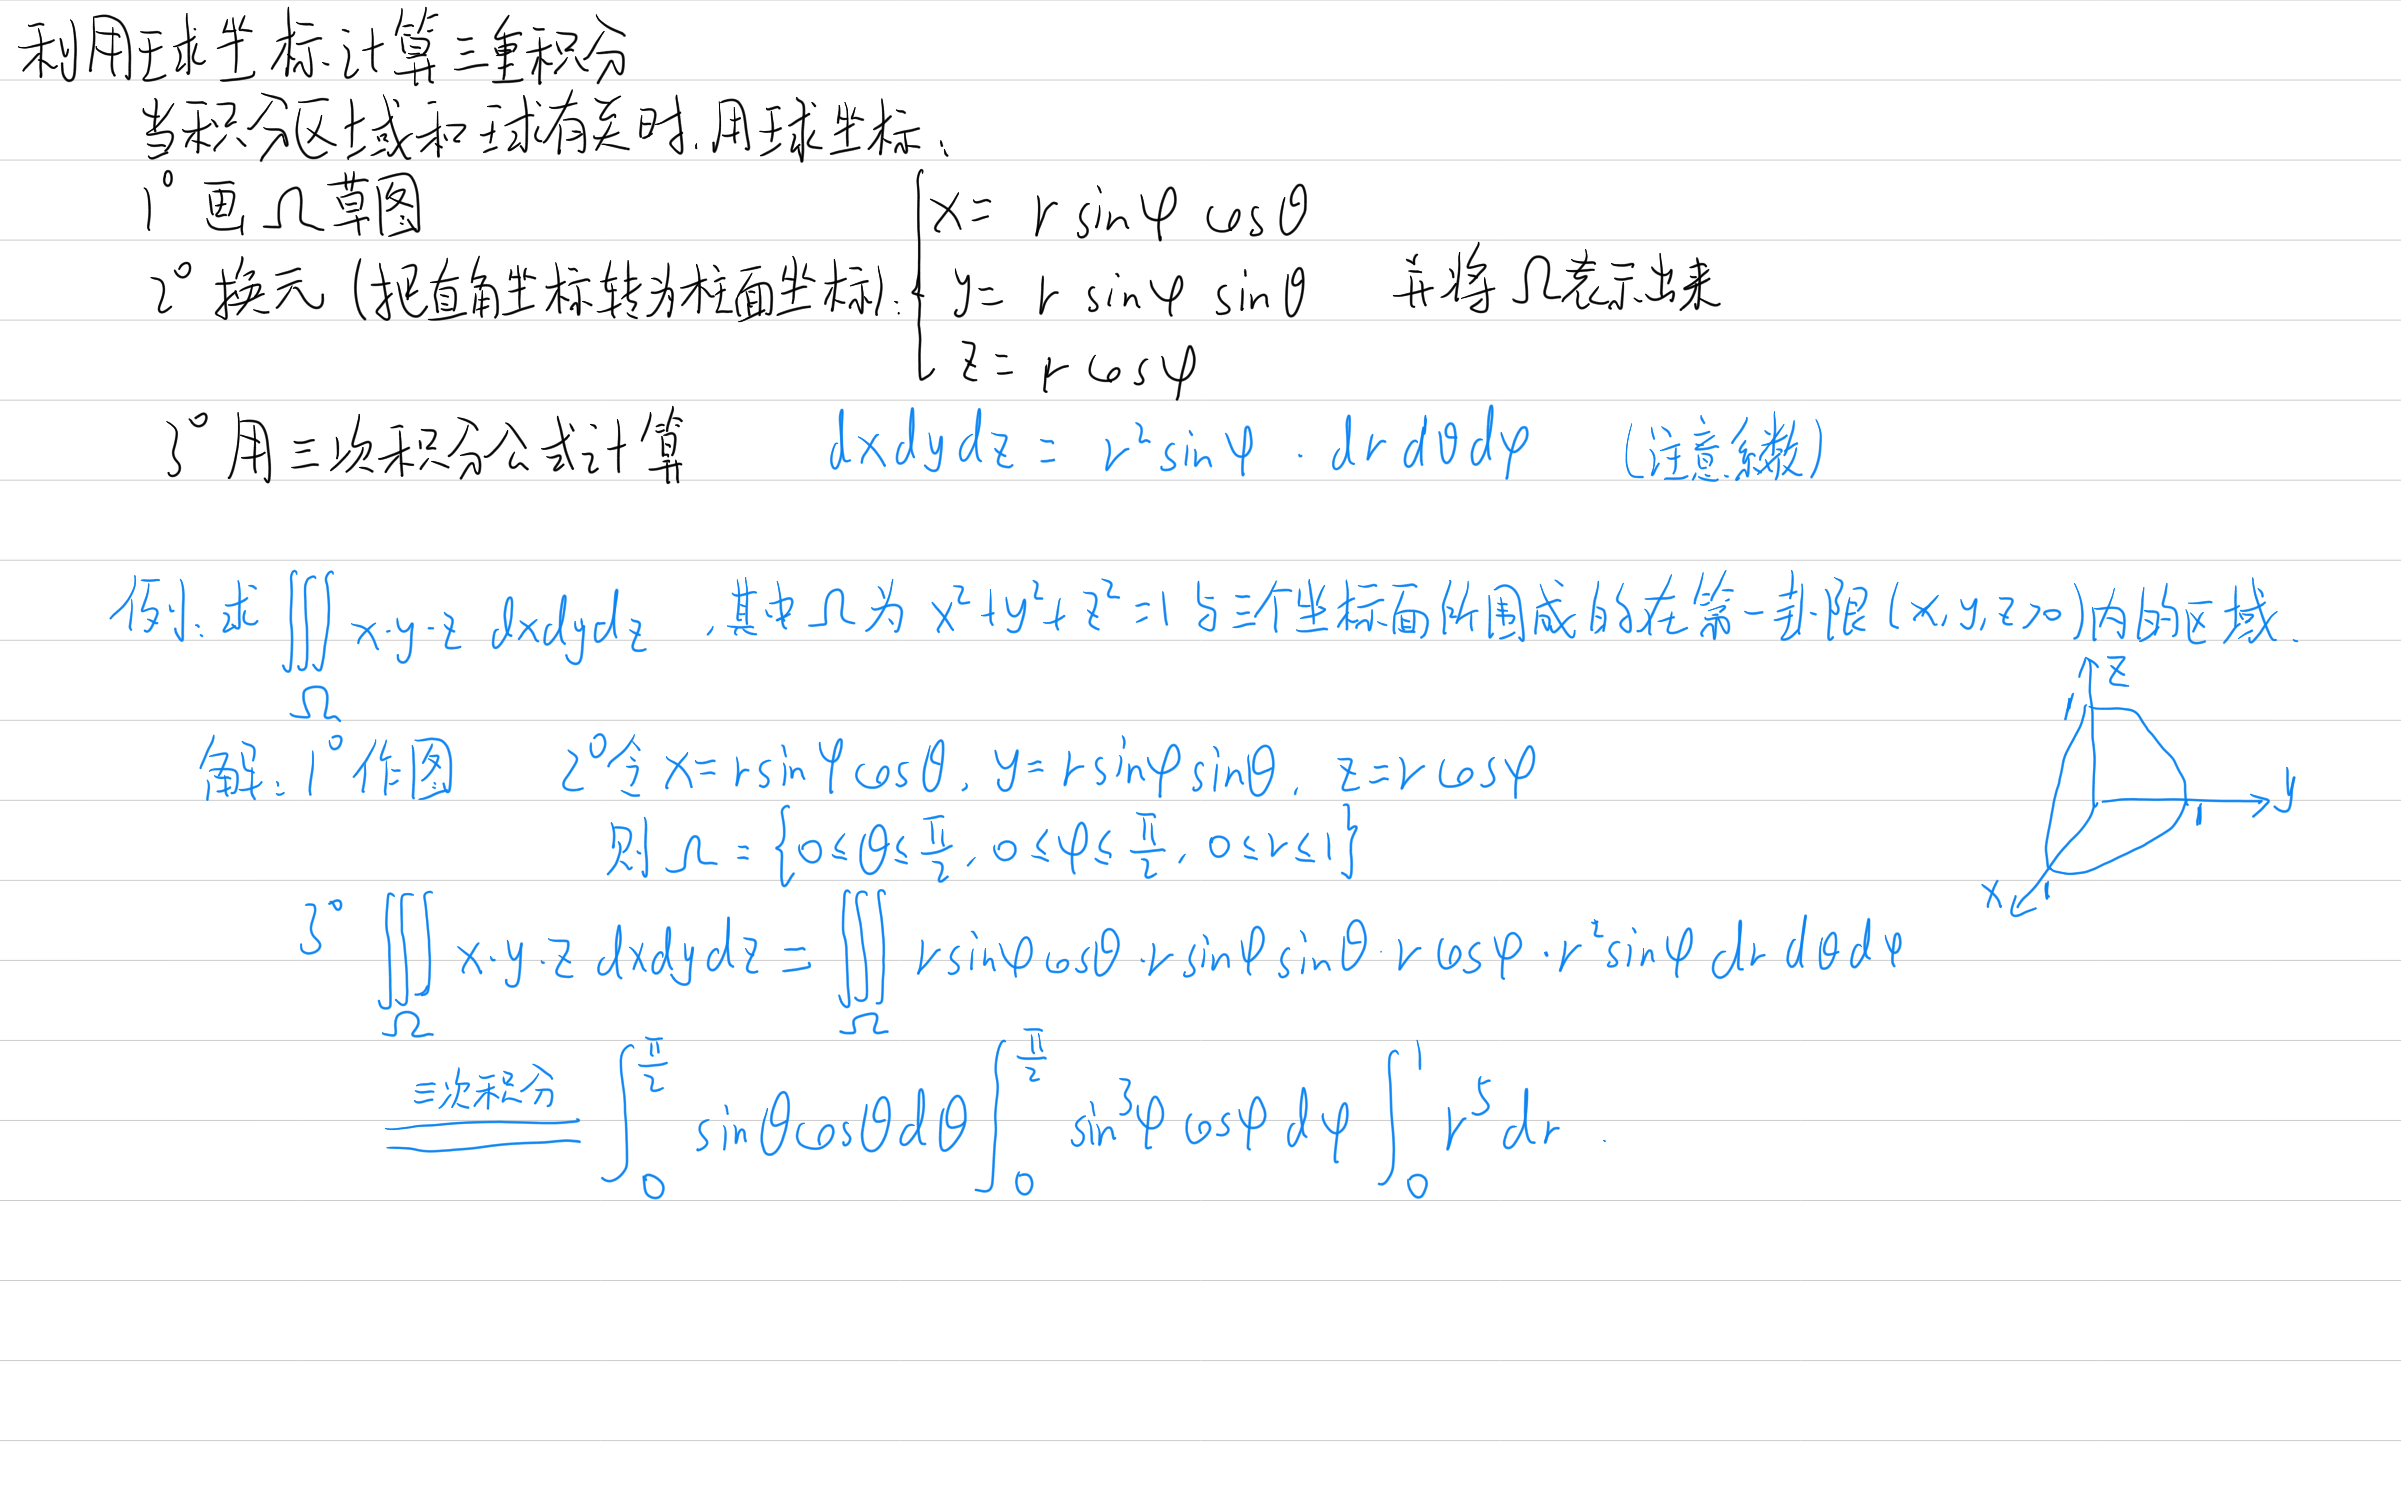 利用球坐标计算三重积分
当积分区域和球有关时,用球坐标.
1° 画Ω草图
2° 换元 (把直角坐标转为柱面坐标): { x = r sinφ cosθ
y = r sinφ sinθ 并将Ω表示出来
z = r cosφ
3° 用三次积分公式计算 dxdydz = r² sinφ · dr dθ dφ (注意系数)
例: 求 ∭ x·y·z dxdydz ,其中Ω为 x²+y²+z²=1 与三个坐标面所围成的在第一卦限(x,y,z>0)内的区域.
Ω
z
解: 1° 作图 2° 令 x=rsinφcosθ, y=rsinφsinθ, z=rcosφ
1
y
1
则Ω = {0≤θ≤π/2, 0≤φ≤π/2, 0≤r≤1}
x 1
3° ∭ x·y·z dxdydz = ∭ rsinφcosθ·rsinφsinθ·rcosφ·r²sinφ dr dθ dφ
Ω Ω
三次积分 ∫₀^{π/2} sinθcosθdθ ∫₀^{π/2} sin³φcosφdφ ∫₀¹ r⁵dr.